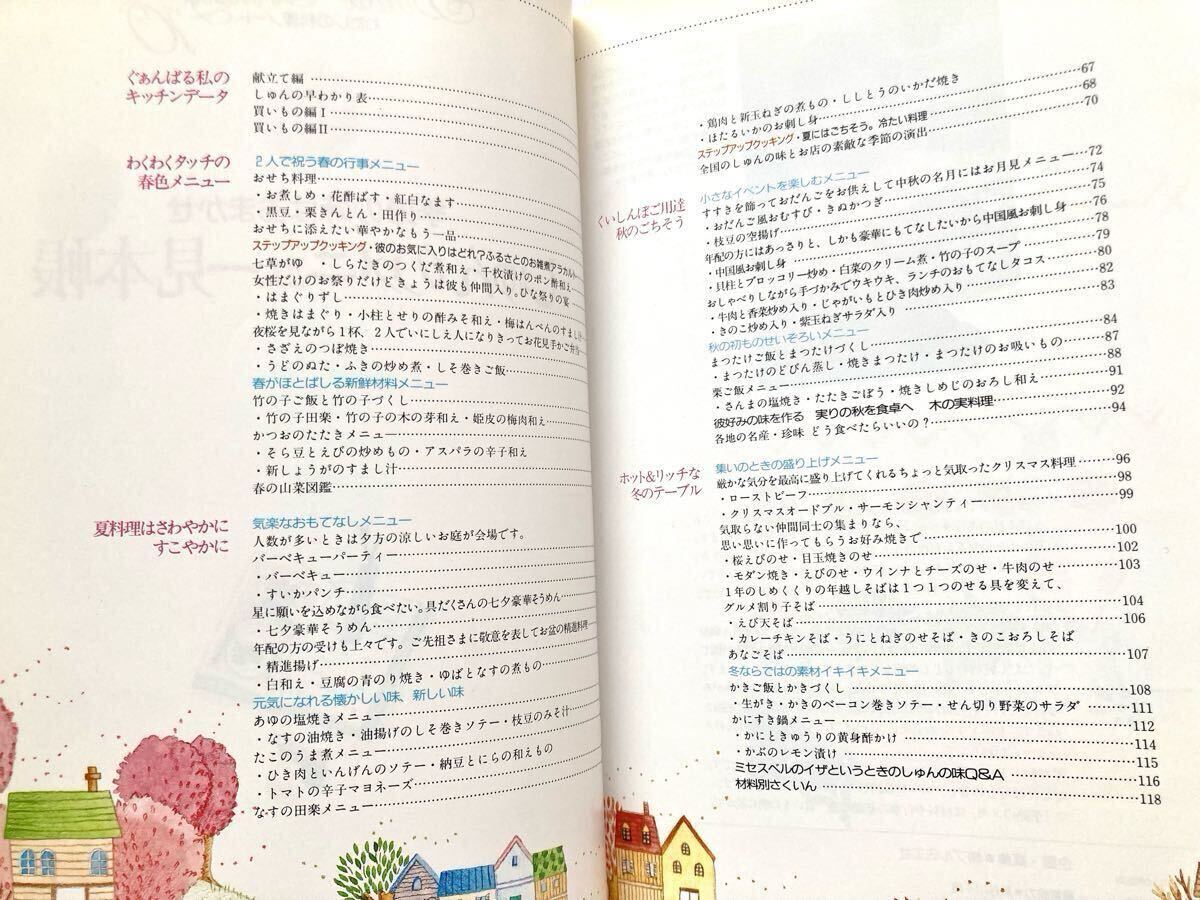 ぐぁんばる私の
キッチンデータ
献立て編
しゅんの早わかり表
買いもの編Ⅰ
買いもの編Ⅱ
わくわくタッチの
春色メニュー
2人で祝う春の行事メニュー
おせち料理
・お煮しめ・花酢ばす・紅白なます
・黒豆・栗きんとん・田作り
おせちに添えたい華やかなもう一品
ステップアップクッキング・彼のお気に入りはどれ?ふるさとのお雑煮アラカルト
七草がゆ ・しらたきのつくだ煮和え・千枚漬けのポン酢和え
女性だけのお祭りだけどきょうは彼も仲間入り。ひな祭りの宴
・はまぐりずし
・焼きはまぐり・小柱とせりの酢みそ和え・梅はんぺんのすまし汁
夜桜を見ながら1杯、2人でいにしえ人になりきってお花見手かご弁当
・さざえのつぼ焼き
・うどのぬた・ふきの炒め煮・しそ巻きご飯
春がほとばしる新鮮材料メニュー
竹の子ご飯と竹の子づくし
・竹の子田楽・竹の子の木の芽和え・姫皮の梅肉和え
かつおのたたきメニュー
・そら豆とえびの炒めもの・アスパラの辛子和え
・新しょうがのすまし汁
春の山菜図鑑
夏料理はさわやかに
すこやかに
気楽なおもてなしメニュー
人数が多いときは夕方の涼しいお庭が会場です。
バーベキューパーティー
・バーベキュー
・すいかパンチ
星に願いを込めながら食べたい。具だくさんの七夕豪華そうめん
・七夕豪華そうめん
年配の方の受けも上々です。ご先祖さまに敬意を表してお盆の精進料理
・精進揚げ
・白和え・豆腐の青のり焼き・ゆばとなすの煮もの
元気になれる懐かしい味、新しい味
あゆの塩焼きメニュー
・なすの油焼き・油揚げのしそ巻きソテー・枝豆のみそ汁
たこのうま煮メニュー
・ひき肉といんげんのソテー・納豆とにらの和えもの
・トマトの辛子マヨネーズ
なすの田楽メニュー
・鶏肉と新玉ねぎの煮もの・ししとうのいかだ焼き 67
・ほたるいかのお刺し身 68
ステップアップクッキング・夏にはごちそう。冷たい料理 70
全国のしゅんの味とお店の素敵な季節の演出 72
くいしんぼご用達
秋のごちそう
小さなイベントを楽しむメニュー
すすきを飾っておだんごをお供えして中秋の名月にはお月見メニュー 74
・おだんご風おむすび・きぬかつぎ 75
・枝豆の空揚げ 76
年配の方にはあっさりと、しかも豪華にもてなしたいから中国風お刺し身 78
・中国風お刺し身 79
・貝柱とブロッコリー炒め・白菜のクリーム煮・竹の子のスープ 80
おしゃべりしながら手づかみでウキウキ、ランチのおもてなしタコス 82
・牛肉と香菜炒め入り・じゃがいもとひき肉炒め入り 83
・きのこ炒め入り・紫玉ねぎサラダ入り
秋の初ものせいぞろいメニュー
まつたけご飯とまつたけづくし 84
・まつたけのどびん蒸し・焼きまつたけ・まつたけのお吸いもの 87
栗ご飯メニュー 88
・さんまの塩焼き・たたきごぼう・焼きしめじのおろし和え 91
彼好みの味を作る 実りの秋を食卓へ 木の実料理 92
各地の名産・珍味 どう食べたらいいの? 94
ホット&リッチな
冬のテーブル
集いのときの盛り上げメニュー
厳かな気分を最高に盛り上げてくれるちょっと気取ったクリスマス料理 96
・ローストビーフ 98
・クリスマスオードブル・サーモンシャンティー 99
気取らない仲間同士の集まりなら、
思い思いに作ってもらうお好み焼きで 100
・桜えびのせ・目玉焼きのせ 102
・モダン焼き・えびのせ・ウインナとチーズのせ・牛肉のせ 103
1年のしめくくりの年越しそばは1つ1つのせる具を変えて、
グルメ割り子そば 104
・えび天そば 106
・カレーチキンそば・うにとねぎのせそば・きのこおろしそば
あなごそば 107
冬ならではの素材イキイキメニュー
かきご飯とかきづくし 108
・生がき・かきのベーコン巻きソテー・せん切り野菜のサラダ 111
かにすき鍋メニュー 112
・かにときゅうりの黄身酢かけ 114
・かぶのレモン漬け 115
ミセスベルのイザというときのしゅんの味Q&A 116
材料別さくいん 118